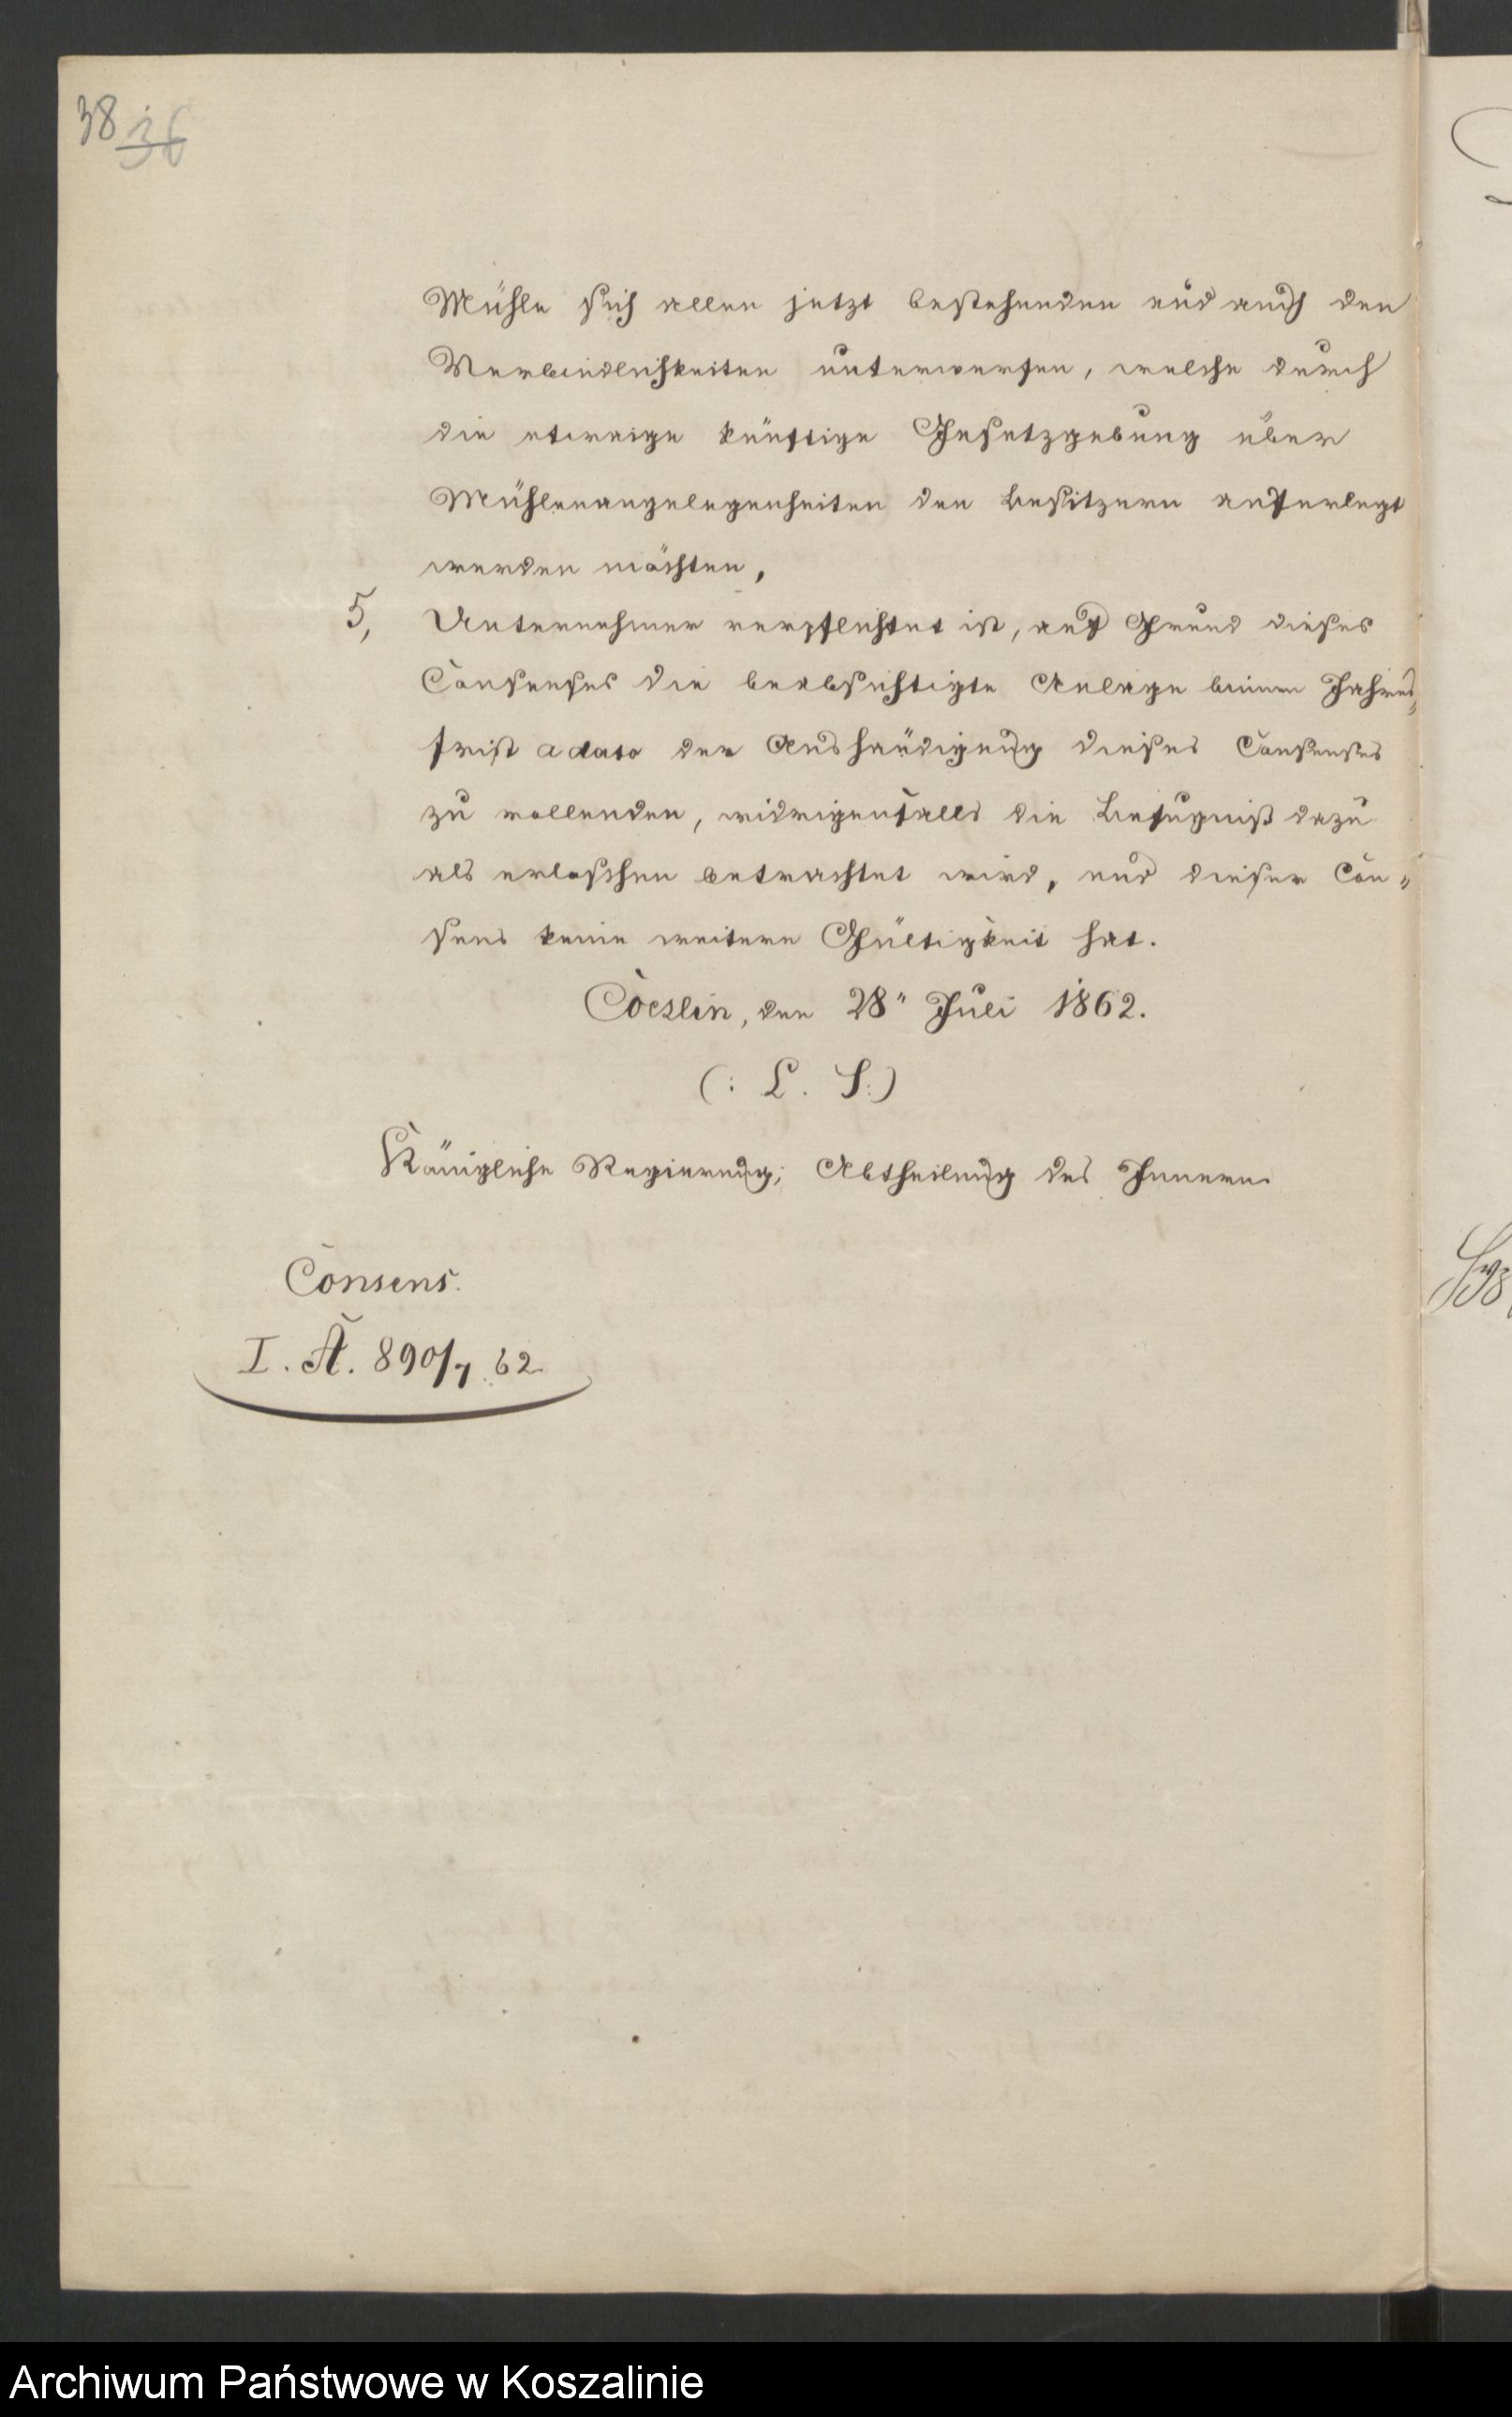 38 36
Mühle sich allen jetzt bestehenden und auch den
Verbindlichkeiten unterwerfen, welche durch
die etwaige künftige Gesetzgebung über
Mühlenangelegenheiten den Besitzern auferlegt
werden möchten,
5, Unternehmer verpflichtet ist, auf Grund dieses
Consenses die beabsichtigte Anlage binnen Jahres-
frist a dato der Aushändigung dieses Consenses
zu vollenden, widrigenfalls die Befugniß dazu
als erloschen betrachtet wird, und dieser Con-
sens keine weitere Gültigkeit hat.
Coeslin, den 28" Juli 1862.
(: L. S:)
Königliche Regierung; Abtheilung des Innern.
Consens.
I. A. 890/7 62
Archiwum Państwowe w Koszalinie